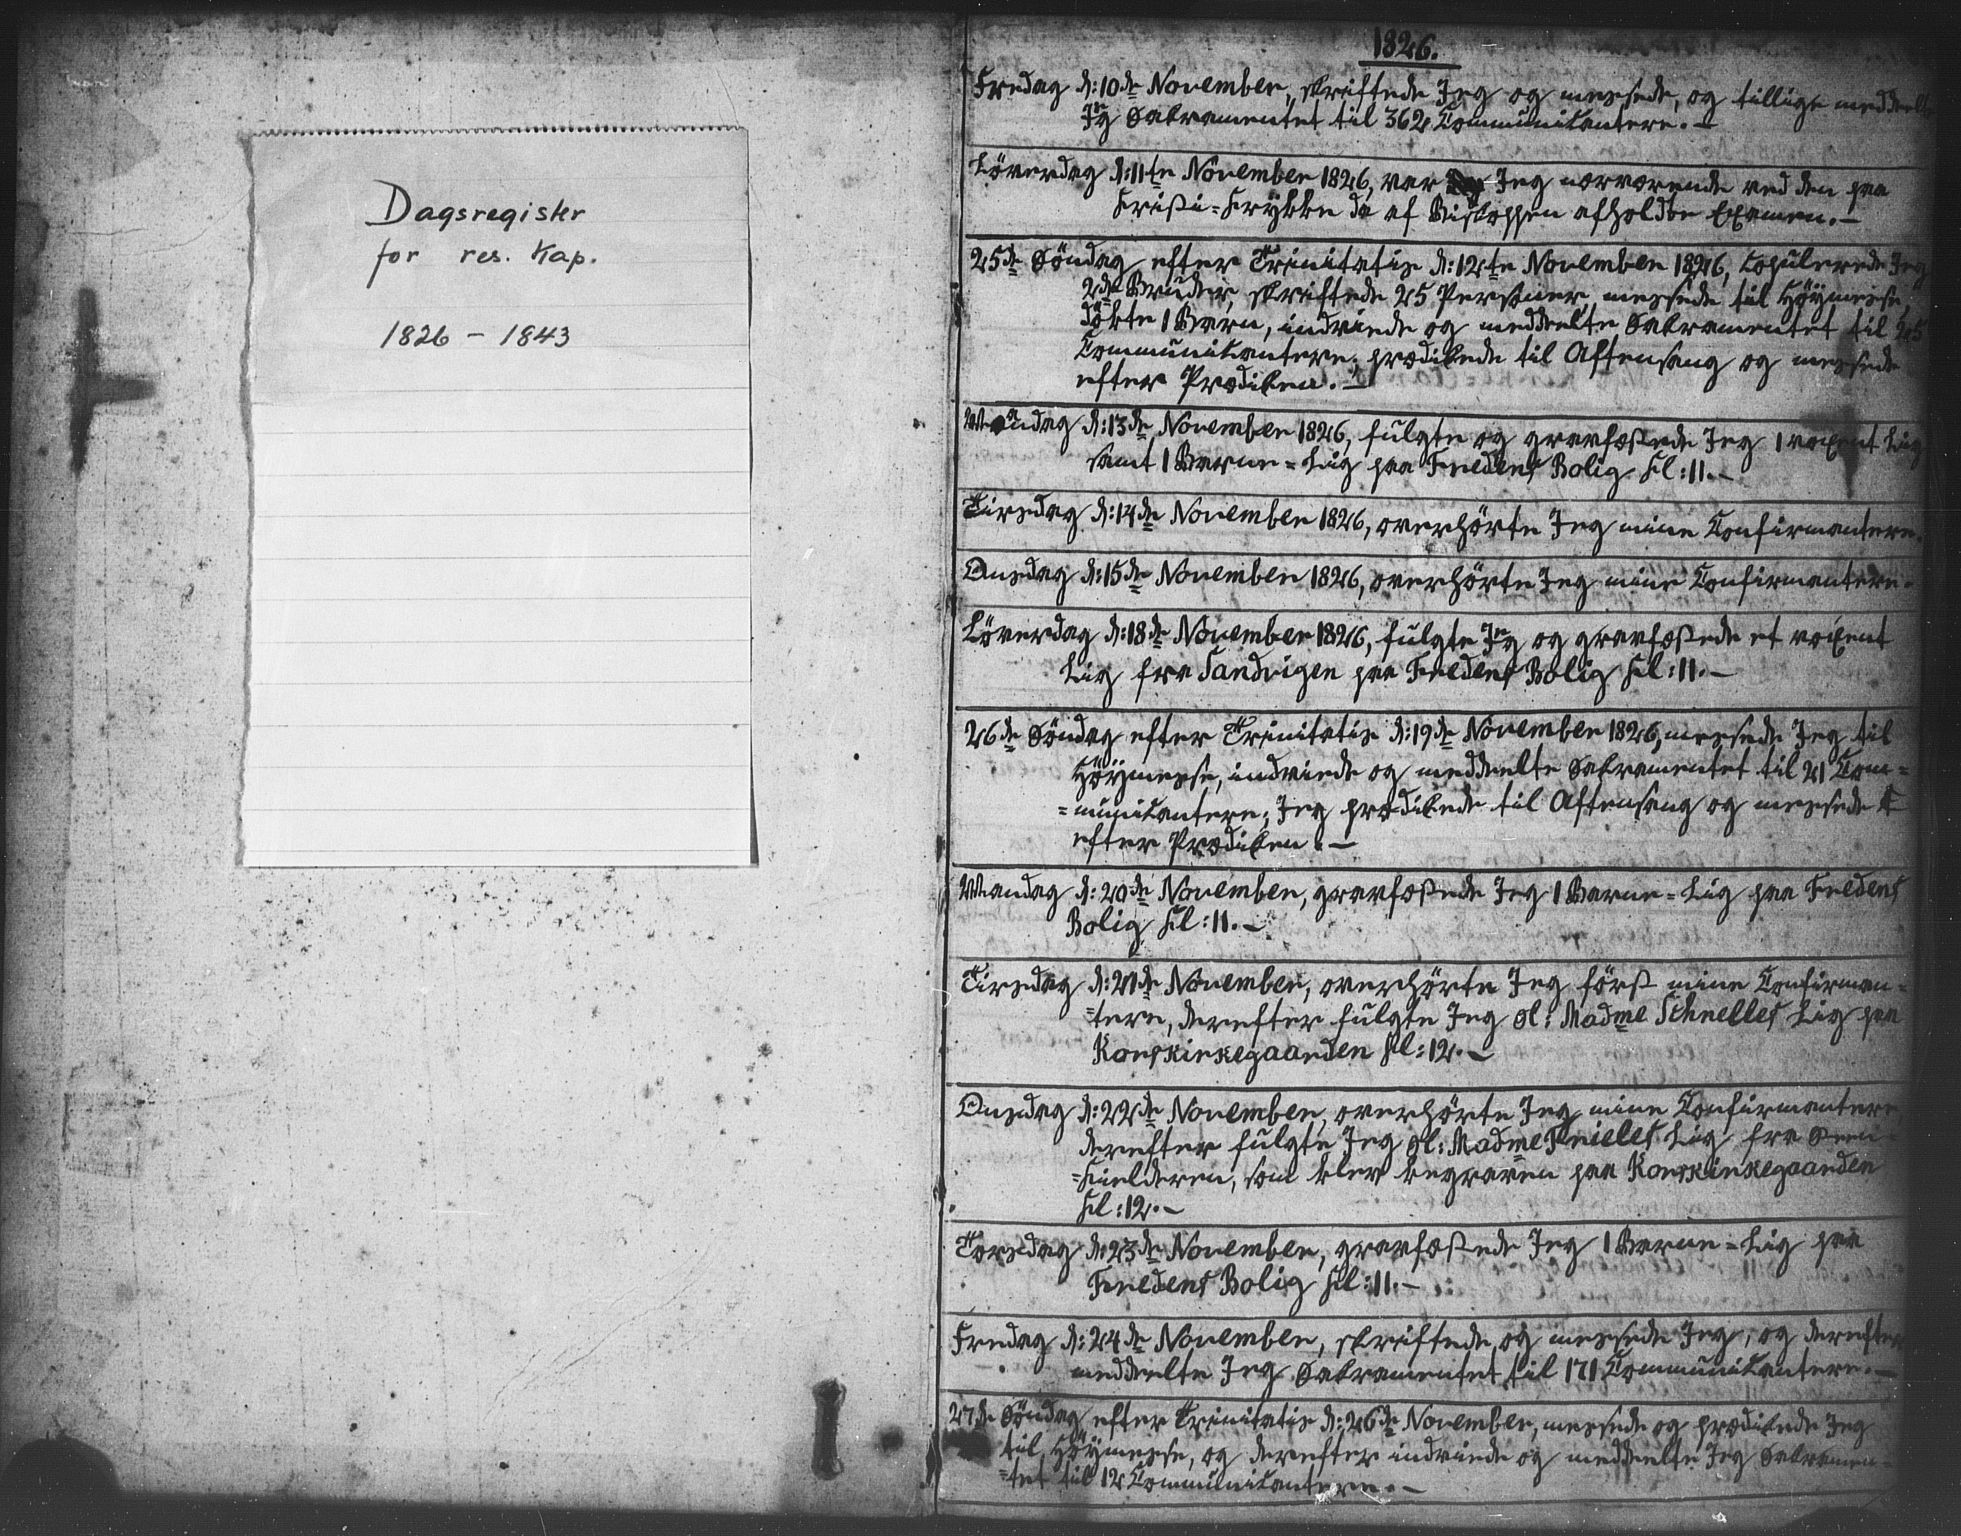 Dagsregister
for res. Kap.
1826 - 1843
1826.
Fredag d: 10de November, skriftede Jeg og messede, og tillige meddeelte
Jeg Sakramentet til 362 Communikantere. —
Löverdag d: 11te November 1826, var Jeg nærværende ved den paa
Kristi-Krybbe da af Biskoppen afholdte Examen. —
25de Söndag efter Trinitatis d: 12te November 1826, Copulerede Jeg
2de Bruder, skriftede 25 Personer, messede til Höymesse,
döbte 1 Barn, indviede og meddeelte Sakramentet til 25
Communikantere; prædikede til Aftensang og messede
efter Prædiken. —
Mandag d: 13de November 1826, fulgte og gravfæstede Jeg 1 voxent Lig
samt 1 Barne=Lig paa Fredens Bolig Kl: 11. —
Tirsdag d: 14de November 1826, overhörte Jeg mine Confirmantere.
Onsdag d: 15de November 1826, overhörte Jeg mine Confirmantere.
Löverdag d: 18de November 1826, fulgte Jeg og gravfæstede et voxent
Lig fra Sandvigen paa Fredens Bolig Kl: 11. —
26de Söndag efter Trinitatis d: 19de November 1826, messede Jeg til
Höymesse, indviede og meddeelte Sakramentet til 21 Com=
=munikantere; Jeg prædikede til Aftensang og messede
efter Prædiken. —
Mandag d: 20de November, gravfæstede Jeg 1 Barne=Lig paa Fredens
Bolig Kl: 11. —
Tirsdag d: 21de November, overhörte Jeg först mine Confirman=
=tere, derefter fulgte Jeg Sl: Madme Schnelles Lig paa
Korskirkegaarden Kl: 12. —
Onsdag d: 22de November, overhörte Jeg mine Confirmantere
derefter fulgte Jeg Sl: Madme Lig fra
som blev begraven paa Korskirkegaarden
Kl: 12. —
Torsdag d: 23de November, gravfæstede Jeg 1 Barne=Lig paa
Fredens Bolig Kl: 11. —
Fredag d: 24de November, skriftede og messede Jeg, og derefter
meddeelte Jeg Sakramentet til 171 Communikantere. —
27de Söndag efter Trinitatis d: 26de November, messede og prædikede Jeg
til Höymesse, og derefter indviede og meddeelte Jeg Sakramen=
=tet til 12 Communikantere. —